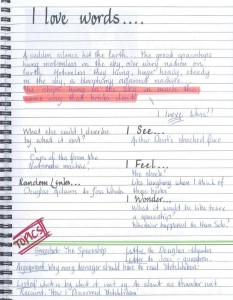 I love words....
A sudden silence hit the Earth.... The great spaceships
hung motionless in the sky, over every nation on
Earth. Motionless they hung, huge, heavy, steady
in the sky, a blasphemy against nature...
The ships hung in the sky in much the
same way that bricks don't.
I love this!!
What else could I describe
by what it isn't?
Cups of tea from the
machine.
Random Links...
Douglas Adams to Joss Whedon
I See...
Arthur Dent's shocked face
I Feel...
the shock!
Like laughing when I think of
huge bricks
I Wonder...
What it would be like to see
a spaceship?
Whatever happened to Han Solo?
TOPICS
Snapshot: The Spaceship
Letter to Douglas Adams
Letter to Joss - question.
Argument: Why every teenager should have to read Hitchhikers